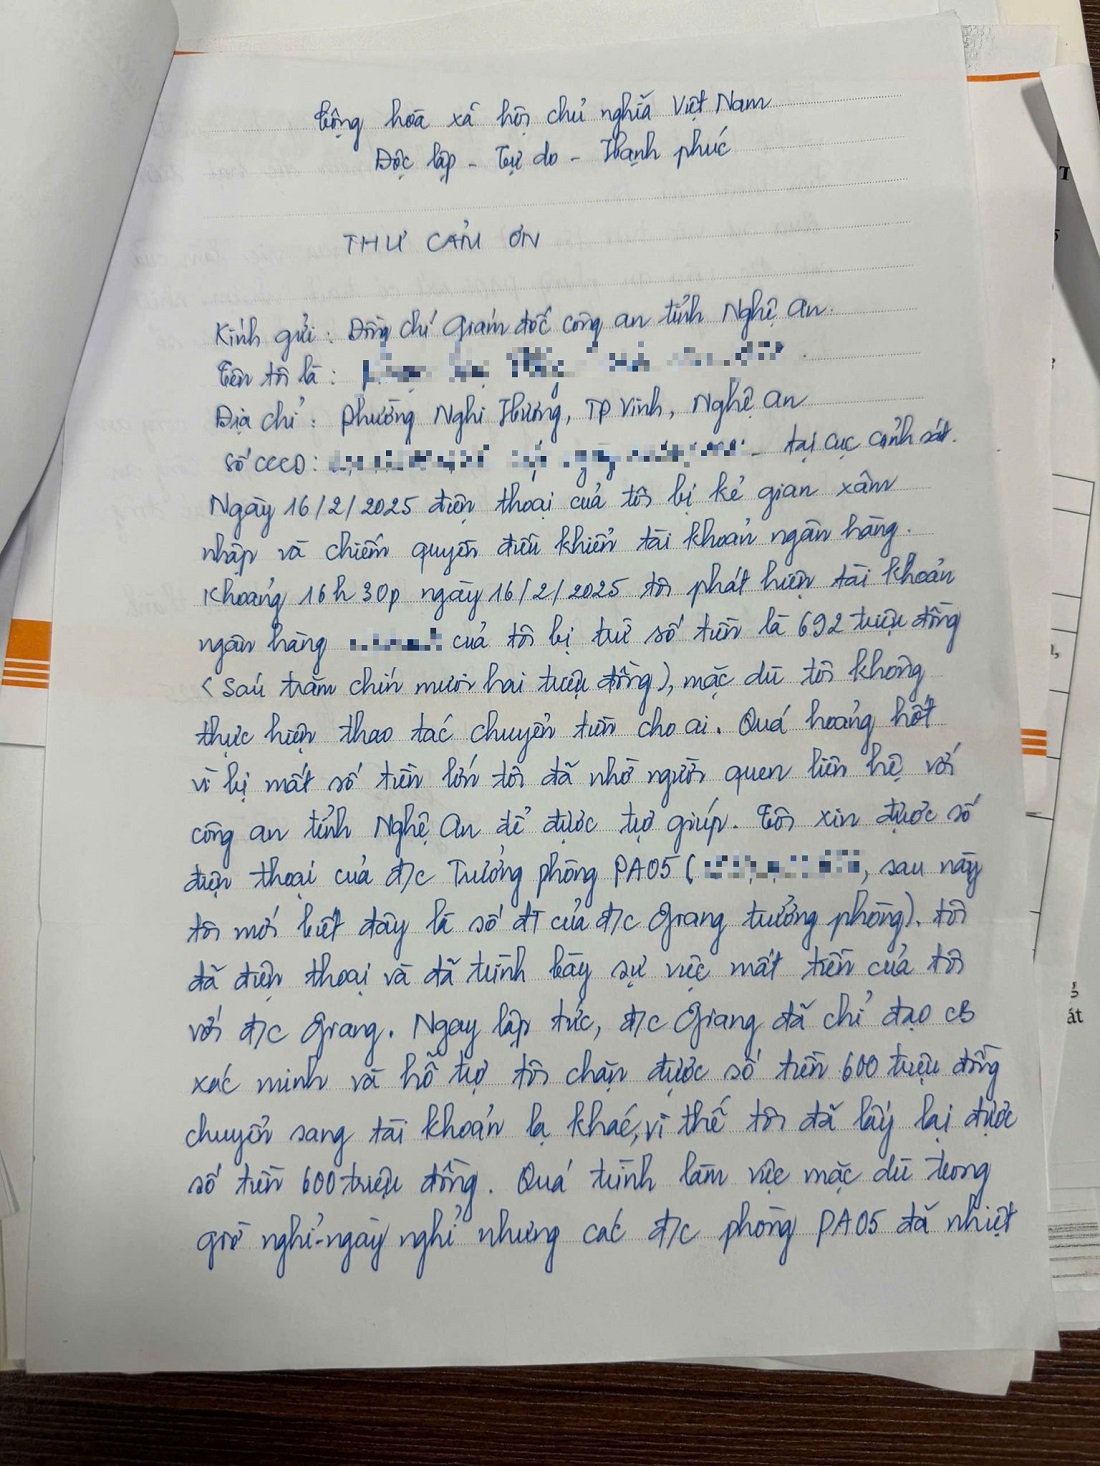 Cộng hoà xã hội chủ nghĩa Việt Nam
Độc lập - Tự do - Hạnh phúc
THƯ CẢM ƠN
Kính gửi: Đồng chí Giám đốc công an tỉnh Nghệ An.
Tên tôi là:
Địa chỉ: phường Nghi Hương, TP Vinh, Nghệ An
Số CCCD: tại cục cảnh sát.
Ngày 16/2/2025 điện thoại của tôi bị kẻ gian xâm
nhập và chiếm quyền điều khiển tài khoản ngân hàng.
Khoảng 16h 30p ngày 16/2/2025 tôi phát hiện tài khoản
ngân hàng của tôi bị trừ số tiền là 692 triệu đồng
(Sáu trăm chín mươi hai triệu đồng), mặc dù tôi không
thực hiện thao tác chuyển tiền cho ai. Quá hoảng hốt
vì bị mất số tiền lớn tôi đã nhờ người quen liên hệ với
công an tỉnh Nghệ An để được trợ giúp. Tôi xin được số
điện thoại của đ/c Trưởng phòng PA05 (, sau này
tôi mới biết đây là số ĐT của đ/c Giang trưởng phòng). tôi
đã điện thoại và đã trình bày sự việc mất tiền của tôi
với đ/c Giang. Ngay lập tức, đ/c Giang đã chỉ đạo CB
xác minh và hỗ trợ tôi chặn được số tiền 600 triệu đồng
chuyển sang tài khoản lạ khác, vì thế tôi đã lấy lại được
số tiền 600 triệu đồng. Quá trình làm việc mặc dù trong
giờ nghỉ-ngày nghỉ nhưng các đ/c phòng PA05 đã nhiệt